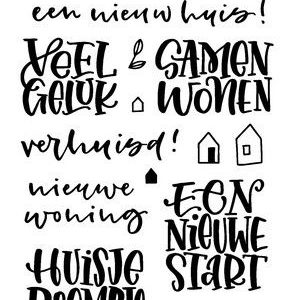 een nieuw huis!
VEEL
GELUK
SAMEN
WONEN
verhuisd!
nieuwe
woning
EEN
NIEUWE
START
HUISJE